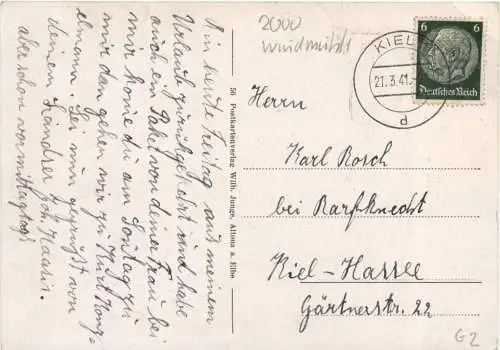 Bin heute Freitag aus meinem
Urlaub zurückgekehrt und habe
auch ein Paket von deiner Frau bei
mir. Komme du am Sonntag zu
mir dan gehen wir zu Kurt
elmann. Sei nun gegrüßt von
deinem Joh. Haase.
aber schon vormittags
56 Postkartenverlag Wilh. Junge, Altona a. Elbe
2000
KIEL
21.3.41.
d
6 6
Deutsches Reich
Herrn
Karl Rosch
bei
Kiel-Hassee
Gärtnerstr. 22
G2